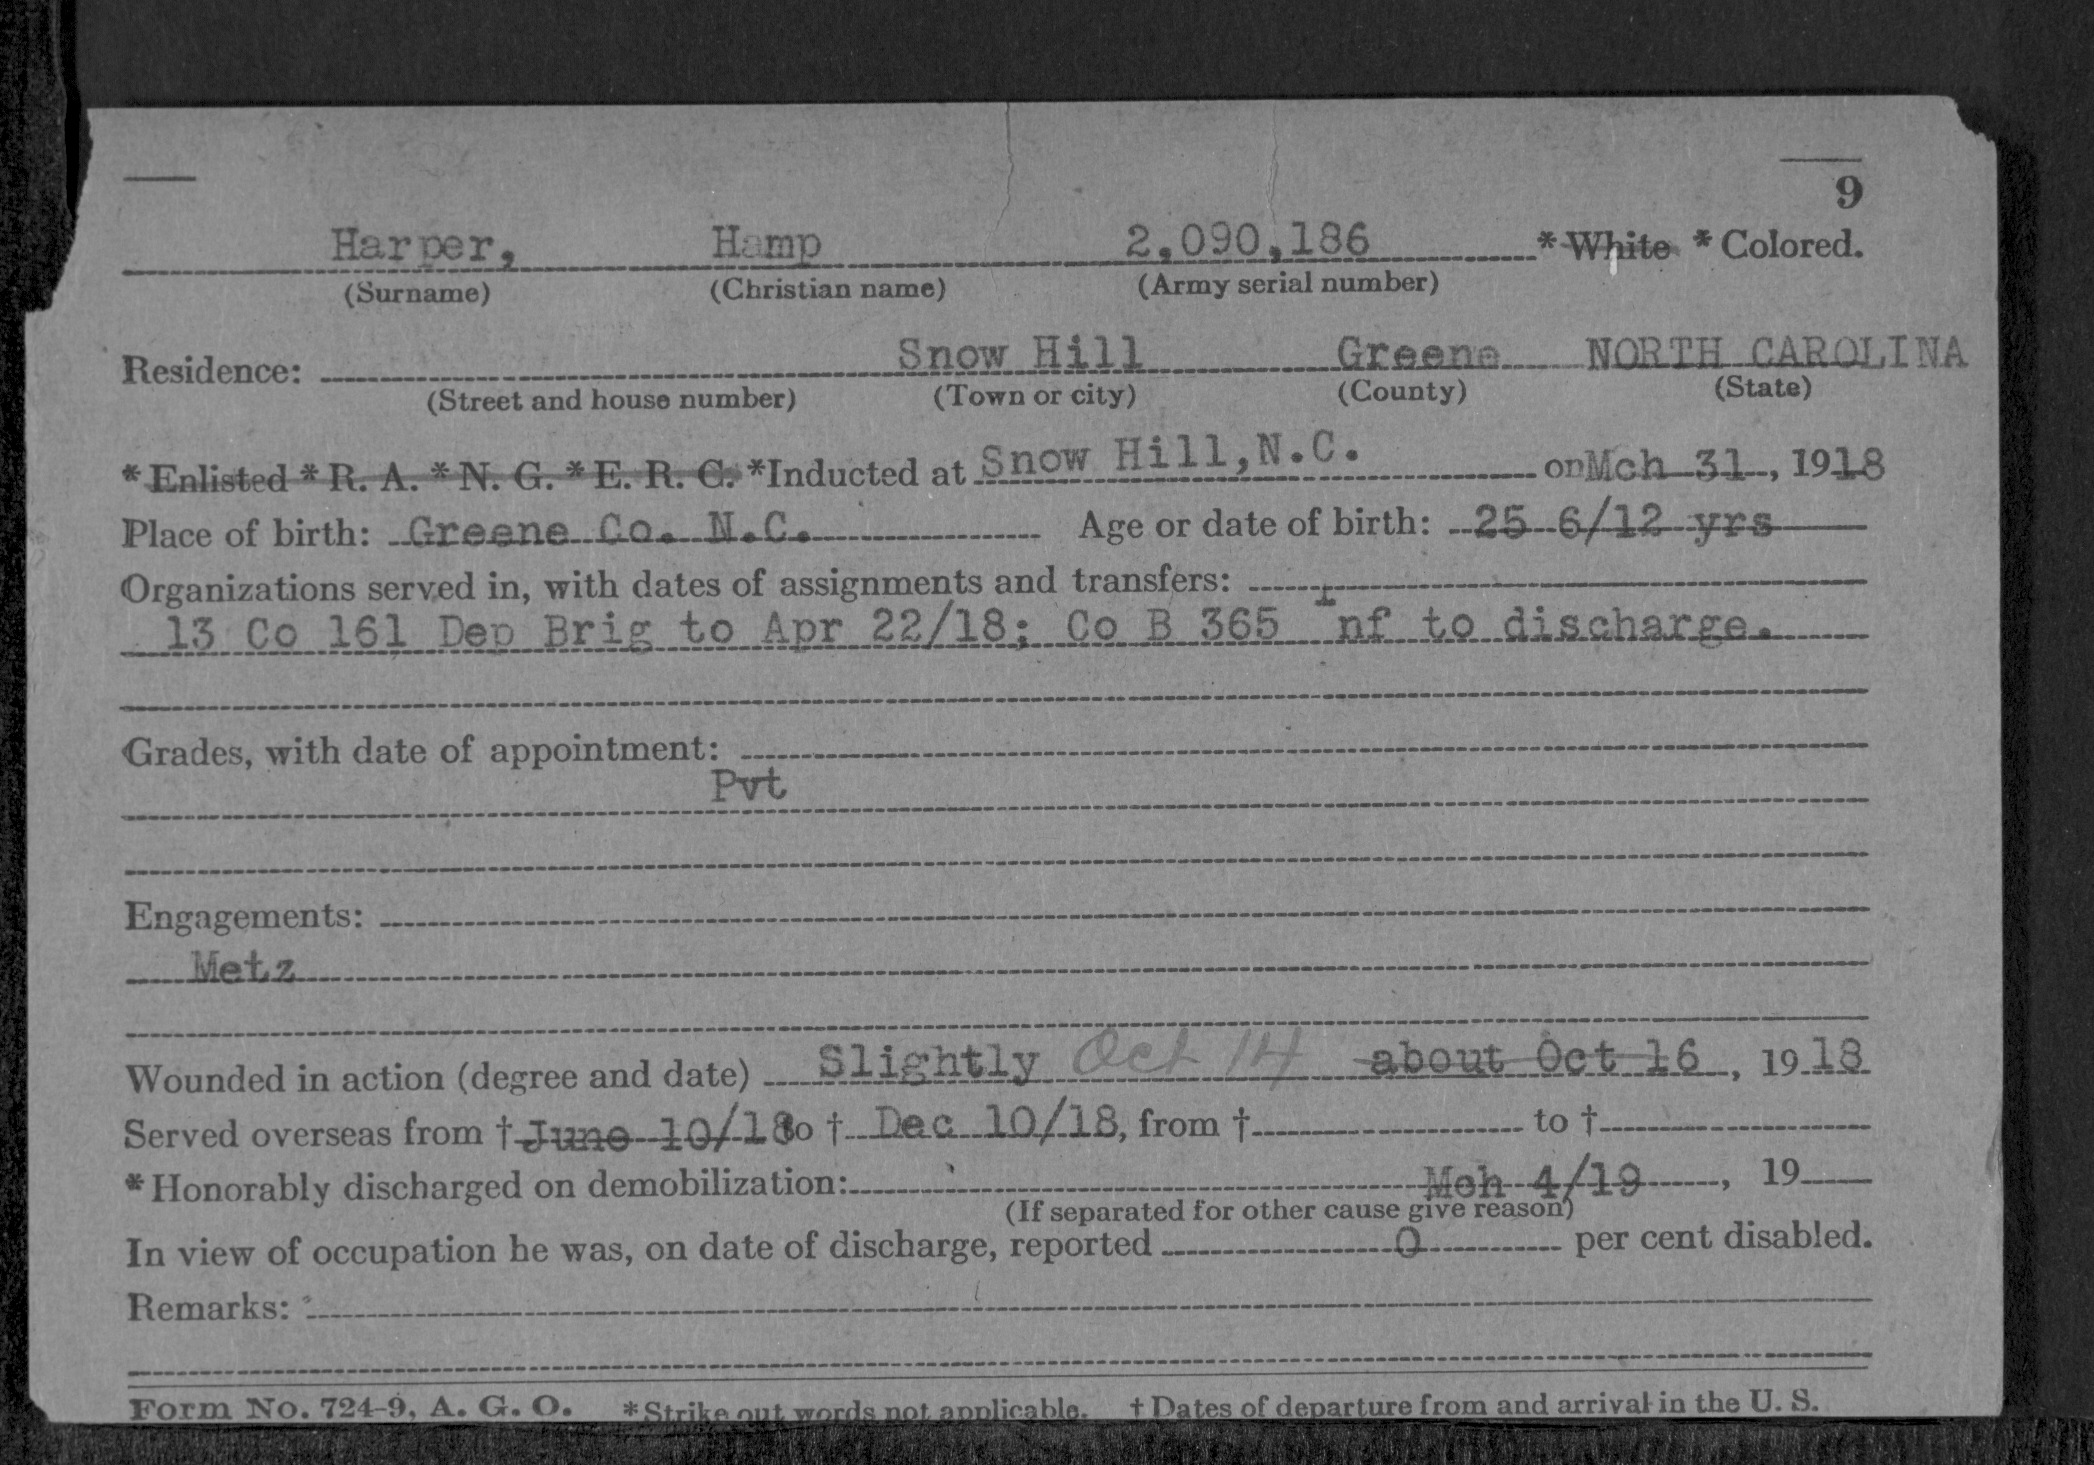 9
Harper, Hamp 2,090,186 *White *Colored.
(Surname) (Christian name) (Army serial number)
Residence: Snow Hill Greene NORTH CAROLINA
(Street and house number) (Town or city) (County) (State)
*Enlisted *R. A. *N. G. *E. R. C. *Inducted at Snow Hill, N.C. on Mch 31, 1918
Place of birth: Greene Co. N.C. Age or date of birth: 25 6/12 yrs
Organizations served in, with dates of assignments and transfers:
13 Co 161 Dep Brig to Apr 22/18; Co B 365 Inf to discharge.
Grades, with date of appointment:
Pvt
Engagements:
Metz
Wounded in action (degree and date) Slightly Oct 14 about Oct 16, 1918
Served overseas from † June 10/18 to † Dec 10/18, from † to †
*Honorably discharged on demobilization: Mch 4/19, 19
(If separated for other cause give reason)
In view of occupation he was, on date of discharge, reported 0 per cent disabled.
Remarks:
Form No. 724-9, A. G. O. *Strike out words not applicable. † Dates of departure from and arrival in the U. S.